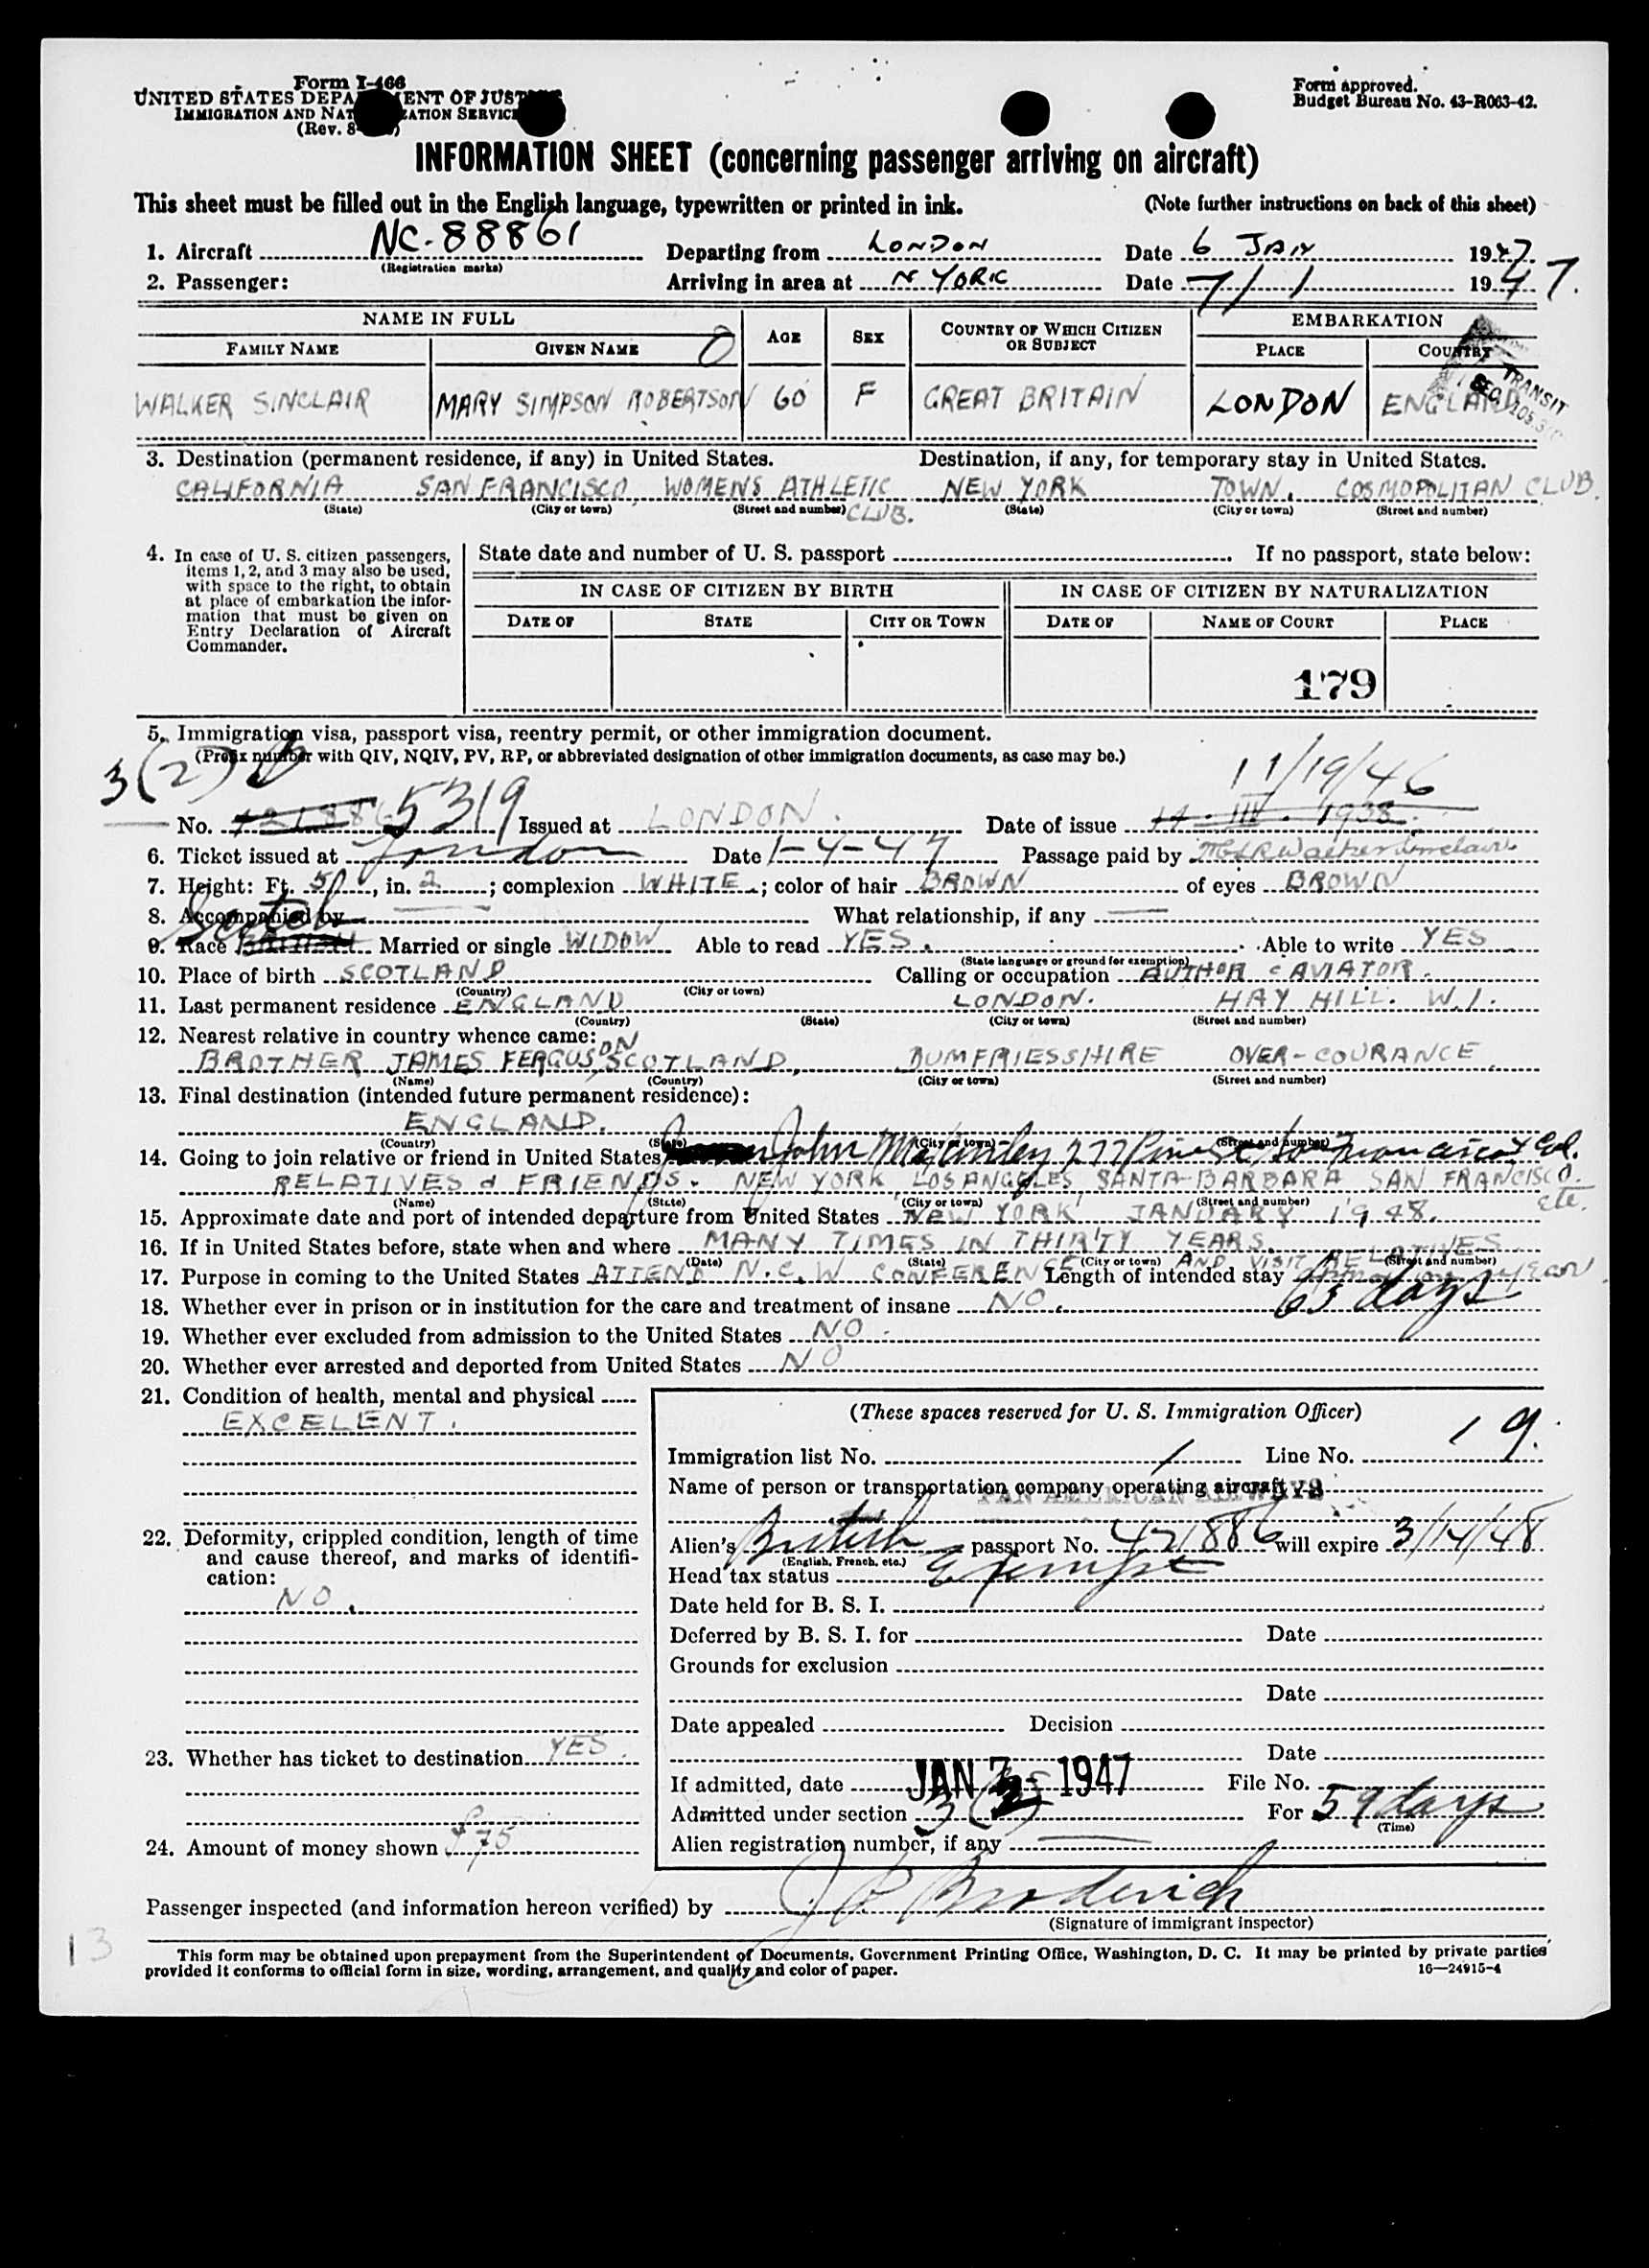 Form I-466
UNITED STATES DEPA ENT OF JUST
IMMIGRATION AND NAT ZATION SERVIC
(Rev. 8- )
Form approved.
Budget Bureau No. 43-R063-42.
INFORMATION SHEET (concerning passenger arriving on aircraft)
This sheet must be filled out in the English language, typewritten or printed in ink. (Note further instructions on back of this sheet)
1. Aircraft NC-88861 Departing from LONDON Date 6 JAN 1947
(Registration marks)
2. Passenger: Arriving in area at N YORK Date 7/1 1947.
NAME IN FULL AGE SEX COUNTRY OF WHICH CITIZEN OR SUBJECT EMBARKATION
FAMILY NAME GIVEN NAME PLACE COUNTRY
WALKER SINCLAIR MARY SIMPSON ROBERTSON 60 F GREAT BRITAIN LONDON ENGLAND
TRANSIT
SEC.
3. Destination (permanent residence, if any) in United States. Destination, if any, for temporary stay in United States.
CALIFORNIA SAN FRANCISCO, WOMENS ATHLETIC CLUB. NEW YORK TOWN. COSMOPOLITAN CLUB.
(State) (City or town) (Street and number) (State) (City or town) (Street and number)
4. In case of U. S. citizen passengers, items 1, 2, and 3 may also be used, with space to the right, to obtain at place of embarkation the information that must be given on Entry Declaration of Aircraft Commander.
State date and number of U. S. passport If no passport, state below:
IN CASE OF CITIZEN BY BIRTH IN CASE OF CITIZEN BY NATURALIZATION
DATE OF STATE CITY OR TOWN DATE OF NAME OF COURT PLACE
179
5. Immigration visa, passport visa, reentry permit, or other immigration document.
(Prefix number with QIV, NQIV, PV, RP, or abbreviated designation of other immigration documents, as case may be.)
3(2)
11/19/46
No. 5319 Issued at LONDON. Date of issue 14. III. 1938.
6. Ticket issued at London Date 1-4-47 Passage paid by Walker Sinclair
7. Height: Ft. 5, in. 2; complexion WHITE; color of hair BROWN of eyes BROWN
8. Accompanied by What relationship, if any
9. Race Scotch Married or single WIDOW Able to read YES. Able to write YES
(State language or ground for exemption)
10. Place of birth SCOTLAND Calling or occupation AUTHOR & AVIATOR.
(Country) (City or town)
11. Last permanent residence ENGLAND LONDON. HAY HILL. W.1.
(Country) (State) (City or town) (Street and number)
12. Nearest relative in country whence came:
BROTHER JAMES FERGUSSON SCOTLAND, DUMFRIESSHIRE OVER-COURANCE
(Name) (Country) (City or town) (Street and number)
13. Final destination (intended future permanent residence):
ENGLAND.
(Country) (State) (City or town) (Street and number)
14. Going to join relative or friend in United States John 277 Pine St San Francisco Cal.
RELATIVES & FRIENDS. NEW YORK LOS ANGELES SANTA-BARBARA SAN FRANCISCO. etc.
(Name) (State) (City or town) (Street and number)
15. Approximate date and port of intended departure from United States NEW YORK JANUARY 1948.
16. If in United States before, state when and where MANY TIMES IN THIRTY YEARS.
(Date) (State) (City or town) (Street and number)
17. Purpose in coming to the United States ATTEND N.C.W CONFERENCE AND VISIT RELATIVES Length of intended stay year
63 days
18. Whether ever in prison or in institution for the care and treatment of insane NO.
19. Whether ever excluded from admission to the United States NO.
20. Whether ever arrested and deported from United States NO
21. Condition of health, mental and physical
EXCELENT.
22. Deformity, crippled condition, length of time and cause thereof, and marks of identification:
NO.
23. Whether has ticket to destination YES.
24. Amount of money shown £75
(These spaces reserved for U. S. Immigration Officer)
Immigration list No. 1 Line No. 19.
Name of person or transportation company operating aircraft
PAN AMERICAN AIRWAYS
Alien's British passport No. 421886 will expire 3/14/48
(English, French, etc.)
Head tax status Exempt
Date held for B. S. I.
Deferred by B. S. I. for Date
Grounds for exclusion
Date
Date appealed Decision
Date
If admitted, date JAN 7 - 1947 File No.
Admitted under section 3(2) For 59 days
(Time)
Alien registration number, if any
Passenger inspected (and information hereon verified) by J P Broderick
(Signature of immigrant inspector)
13
This form may be obtained upon prepayment from the Superintendent of Documents, Government Printing Office, Washington, D. C. It may be printed by private parties
provided it conforms to official form in size, wording, arrangement, and quality and color of paper. 16—24915-4